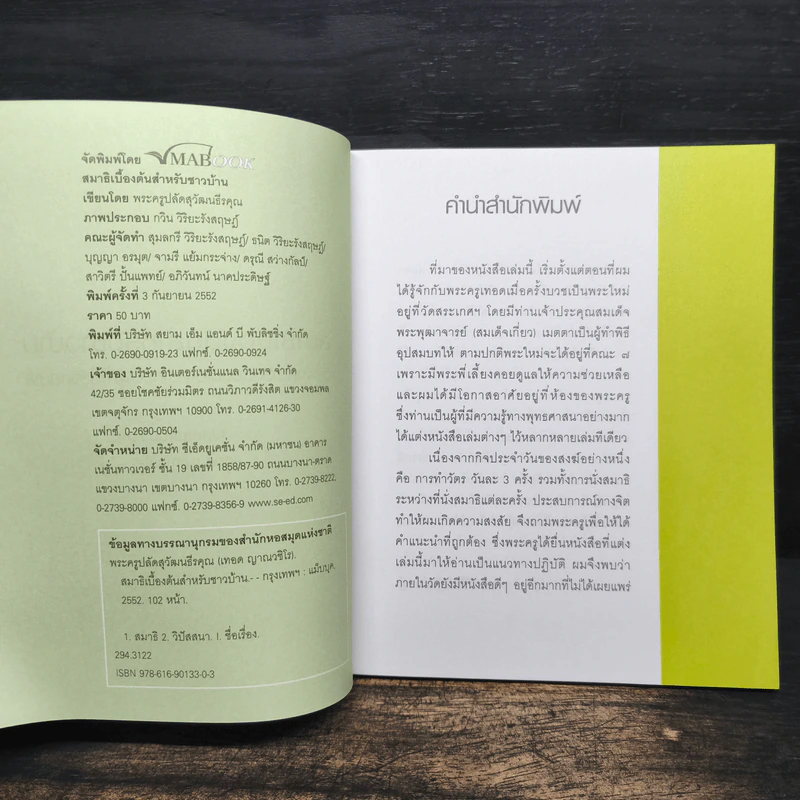 จัดพิมพ์โดย MABOOK
สมาธิเบื้องต้นสำหรับชาวบ้าน
เขียนโดย พระครูปลัดสุวัฒนธีรคุณ
ภาพประกอบ กวิน วิริยะรังสฤษฎ์
คณะผู้จัดทำ สุมลกรี วิริยะรังสฤษฎ์/ ธนิต วิริยะรังสฤษฎ์/
บุญญา อรมุต/ จามรี แย้มกระจ่าง/ ดรุณี สว่างกัลป์/
สาวิตรี ปั้นแพทย์/ อภิวันทน์ นาคประดิษฐ์
พิมพ์ครั้งที่ 3 กันยายน 2552
ราคา 50 บาท
พิมพ์ที่ บริษัท สยาม เอ็ม แอนด์ บี พับลิชชิ่ง จำกัด
โทร. 0-2690-0919-23 แฟกซ์. 0-2690-0924
เจ้าของ บริษัท อินเตอร์เนชั่นแนล วินเทจ จำกัด
42/35 ซอยโชคชัยร่วมมิตร ถนนวิภาวดีรังสิต แขวงจอมพล
เขตจตุจักร กรุงเทพฯ 10900 โทร. 0-2691-4126-30
แฟกซ์. 0-2690-0504
จัดจำหน่าย บริษัท ซีเอ็ดยูเคชั่น จำกัด (มหาชน) อาคาร
เนชั่นทาวเวอร์ ชั้น 19 เลขที่ 1858/87-90 ถนนบางนา-ตราด
แขวงบางนา เขตบางนา กรุงเทพฯ 10260 โทร. 0-2739-8222,
0-2739-8000 แฟกซ์. 0-2739-8356-9 www.se-ed.com
ข้อมูลทางบรรณานุกรมของสำนักหอสมุดแห่งชาติ
พระครูปลัดสุวัฒนธีรคุณ (เทอด ญาณวชิโร).
สมาธิเบื้องต้นสำหรับชาวบ้าน.- - กรุงเทพฯ : แม็บบุค.
2552. 102 หน้า.
1. สมาธิ 2. วิปัสสนา. I. ชื่อเรื่อง.
294.3122
ISBN 978-616-90133-0-3
คำนำสำนักพิมพ์
ที่มาของหนังสือเล่มนี้ เริ่มตั้งแต่ตอนที่ผม
ได้รู้จักกับพระครูเทอดเมื่อครั้งบวชเป็นพระใหม่
อยู่ที่วัดสระเกศฯ โดยมีท่านเจ้าประคุณสมเด็จ
พระพุฒาจารย์ (สมเด็จเกี่ยว) เมตตาเป็นผู้ทำพิธี
อุปสมบทให้ ตามปกติพระใหม่จะได้อยู่ที่คณะ ๗
เพราะมีพระพี่เลี้ยงคอยดูแลให้ความช่วยเหลือ
และผมได้มีโอกาสอาศัยอยู่ที่ห้องของพระครู
ซึ่งท่านเป็นผู้ที่มีความรู้ทางพุทธศาสนาอย่างมาก
ได้แต่งหนังสือเล่มต่างๆ ไว้หลากหลายเล่มทีเดียว
เนื่องจากกิจประจำวันของสงฆ์อย่างหนึ่ง
คือ การทำวัตร วันละ 3 ครั้ง รวมทั้งการนั่งสมาธิ
ระหว่างที่นั่งสมาธิแต่ละครั้ง ประสบการณ์ทางจิต
ทำให้ผมเกิดความสงสัย จึงถามพระครูเพื่อให้ได้
คำแนะนำที่ถูกต้อง ซึ่งพระครูได้ยื่นหนังสือที่แต่ง
เล่มนี้มาให้อ่านเป็นแนวทางปฏิบัติ ผมจึงพบว่า
ภายในวัดยังมีหนังสือดีๆ อยู่อีกมากที่ไม่ได้เผยแพร่